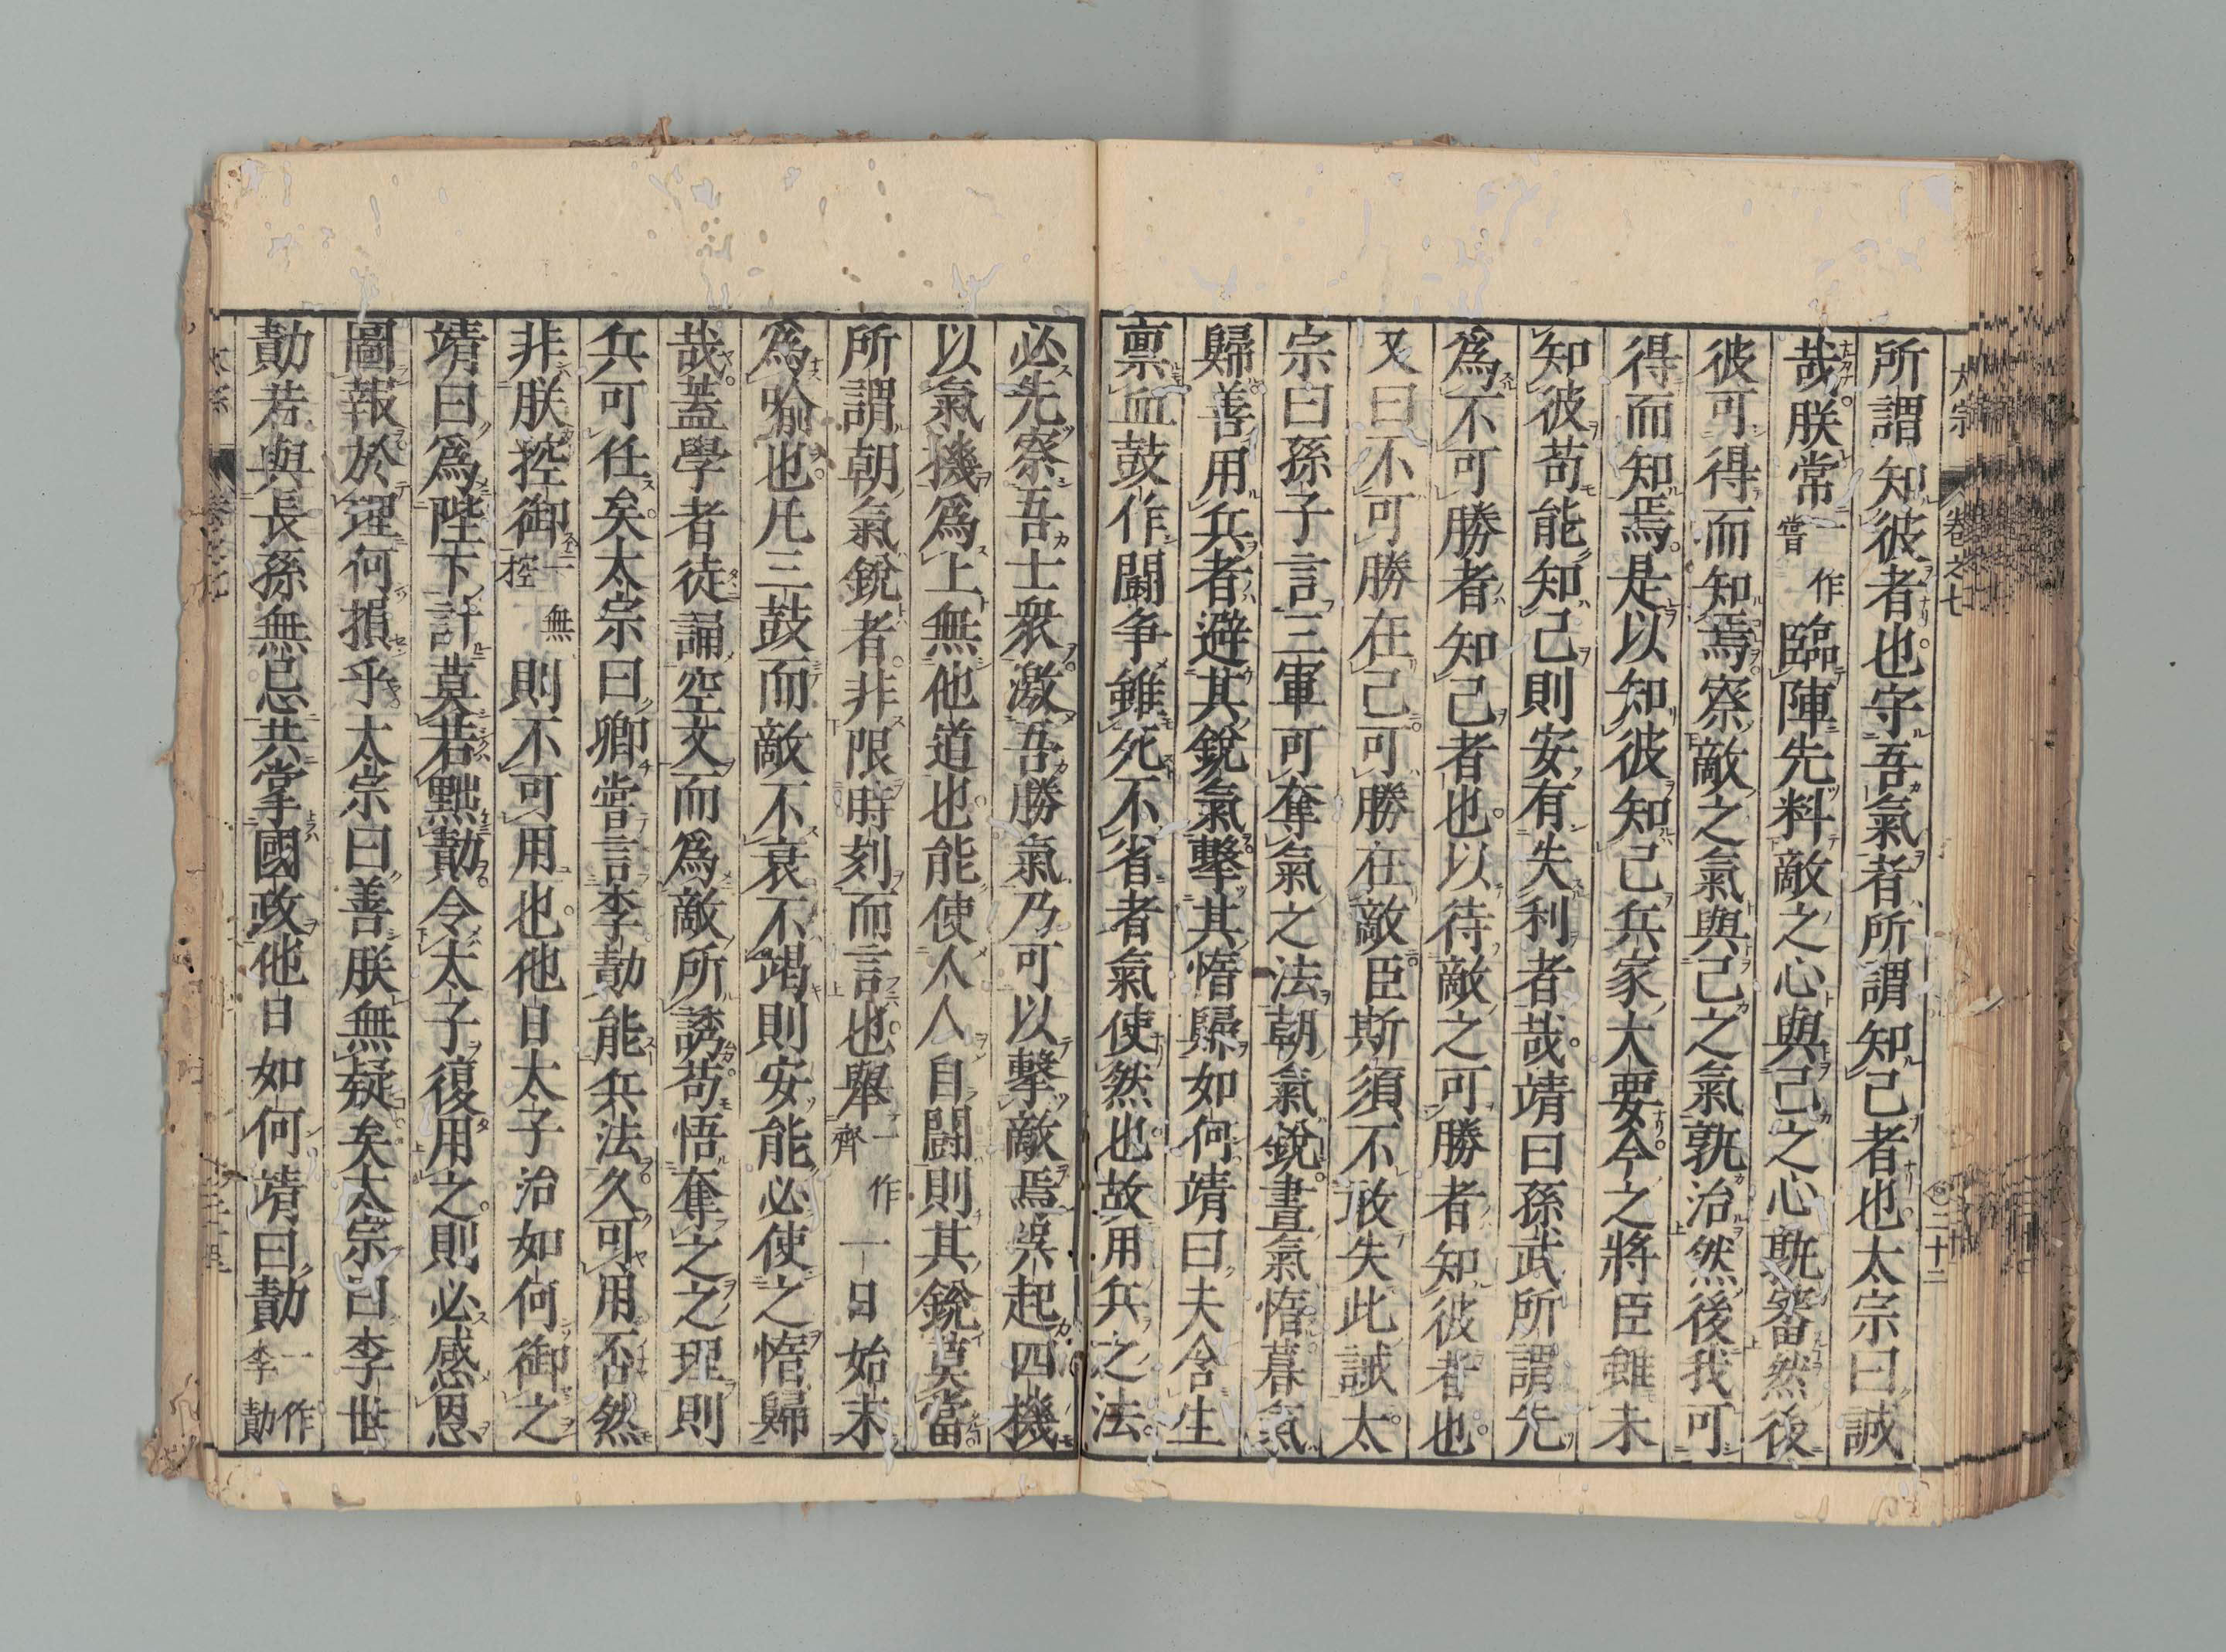 太宗 卷之七 二十二
所謂知彼者也守吾氣者所謂知己者也太宗曰誠
哉朕常一作嘗臨陣先料敵之心與己之心孰審然後
彼可得而知焉察敵之氣與己之氣孰治然後我可
得而知焉是以知彼知己兵家大要今之將臣雖未
知彼苟能知己則安有失利者哉靖曰孫武所謂先
爲不可勝者知己者也以待敵之可勝者知彼者也
又曰不可勝在己可勝在敵臣斯須不敢失此誡太
宗曰孫子言三軍可奪氣之法朝氣銳晝氣惰暮氣
歸善用兵者避其銳氣擊其惰歸如何靖曰夫含生
稟血鼓作鬪争雖死不省者氣使然也故用兵之法
必先察吾士衆激吾勝氣乃可以擊敵焉吳起四機
以氣機爲上無他道也能使人人自鬪則其銳莫當
所謂朝氣銳者非限時刻而言也舉一作齊一日始末
爲喻也凡三鼓而敵不衰不竭則安能必使之惰歸
哉蓋學者徒誦空文而爲敵所誘苟悟奪之之理則
兵可任矣太宗曰卿嘗言李勣能兵法久可用否然
非朕控御一無控則不可用也他日太子治如何御之
靖曰爲陛下計莫若黜勣令太子復用之則必感恩
圖報於理何損乎太宗曰善朕無疑矣太宗曰李世
勣若與長孫無忌共掌國政他日如何靖曰勣一作李勣